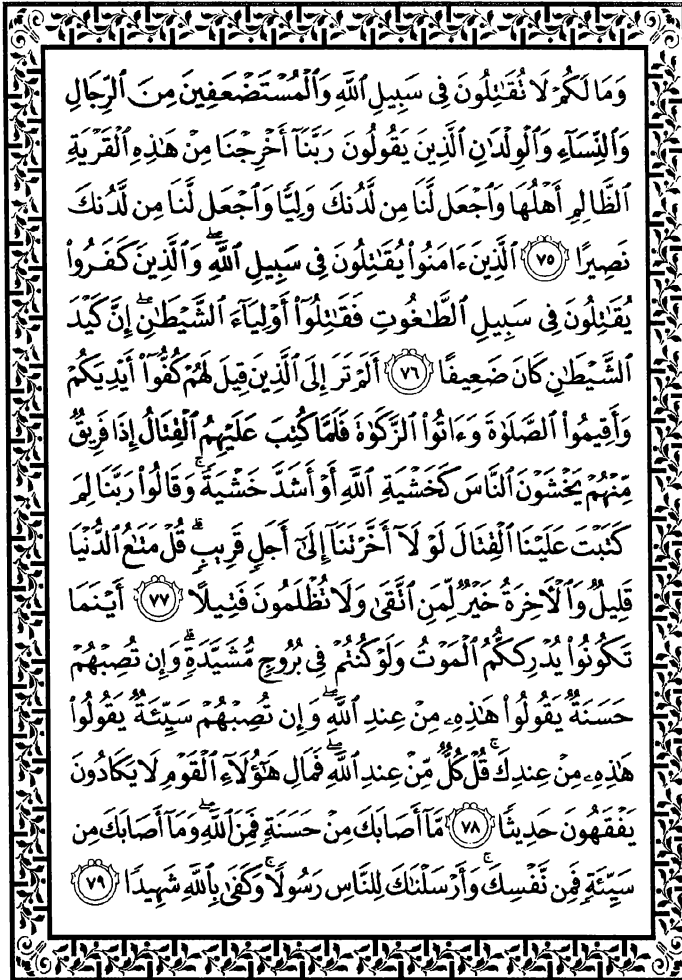 وَمَا لَكُمْ لَا تُقَٰتِلُونَ فِى سَبِيلِ ٱللَّهِ وَٱلْمُسْتَضْعَفِينَ مِنَ ٱلرِّجَالِ
وَٱلنِّسَآءِ وَٱلْوِلْدَٰنِ ٱلَّذِينَ يَقُولُونَ رَبَّنَآ أَخْرِجْنَا مِنْ هَٰذِهِ ٱلْقَرْيَةِ
ٱلظَّالِمِ أَهْلُهَا وَٱجْعَل لَّنَا مِن لَّدُنكَ وَلِيًّا وَٱجْعَل لَّنَا مِن لَّدُنكَ
نَصِيرًا ٧٥ ٱلَّذِينَ ءَامَنُوا۟ يُقَٰتِلُونَ فِى سَبِيلِ ٱللَّهِۖ وَٱلَّذِينَ كَفَرُوا۟
يُقَٰتِلُونَ فِى سَبِيلِ ٱلطَّٰغُوتِ فَقَٰتِلُوٓا۟ أَوْلِيَآءَ ٱلشَّيْطَٰنِۖ إِنَّ كَيْدَ
ٱلشَّيْطَٰنِ كَانَ ضَعِيفًا ٧٦ أَلَمْ تَرَ إِلَى ٱلَّذِينَ قِيلَ لَهُمْ كُفُّوٓا۟ أَيْدِيَكُمْ
وَأَقِيمُوا۟ ٱلصَّلَوٰةَ وَءَاتُوا۟ ٱلزَّكَوٰةَ فَلَمَّا كُتِبَ عَلَيْهِمُ ٱلْقِتَالُ إِذَا فَرِيقٌ
مِّنْهُمْ يَخْشَوْنَ ٱلنَّاسَ كَخَشْيَةِ ٱللَّهِ أَوْ أَشَدَّ خَشْيَةًۚ وَقَالُوا۟ رَبَّنَا لِمَ
كَتَبْتَ عَلَيْنَا ٱلْقِتَالَ لَوْلَآ أَخَّرْتَنَآ إِلَىٰٓ أَجَلٍ قَرِيبٍۗ قُلْ مَتَٰعُ ٱلدُّنْيَا
قَلِيلٌ وَٱلْءَاخِرَةُ خَيْرٌ لِّمَنِ ٱتَّقَىٰ وَلَا تُظْلَمُونَ فَتِيلًا ٧٧ أَيْنَمَا
تَكُونُوا۟ يُدْرِككُّمُ ٱلْمَوْتُ وَلَوْ كُنتُمْ فِى بُرُوجٍ مُّشَيَّدَةٍۗ وَإِن تُصِبْهُمْ
حَسَنَةٌ يَقُولُوا۟ هَٰذِهِۦ مِنْ عِندِ ٱللَّهِۖ وَإِن تُصِبْهُمْ سَيِّئَةٌ يَقُولُوا۟
هَٰذِهِۦ مِنْ عِندِكَۚ قُلْ كُلٌّ مِّنْ عِندِ ٱللَّهِۖ فَمَالِ هَٰٓؤُلَآءِ ٱلْقَوْمِ لَا يَكَادُونَ
يَفْقَهُونَ حَدِيثًا ٧٨ مَّآ أَصَابَكَ مِنْ حَسَنَةٍ فَمِنَ ٱللَّهِۖ وَمَآ أَصَابَكَ مِن
سَيِّئَةٍ فَمِن نَّفْسِكَۚ وَأَرْسَلْنَٰكَ لِلنَّاسِ رَسُولًاۚ وَكَفَىٰ بِٱللَّهِ شَهِيدًا ٧٩